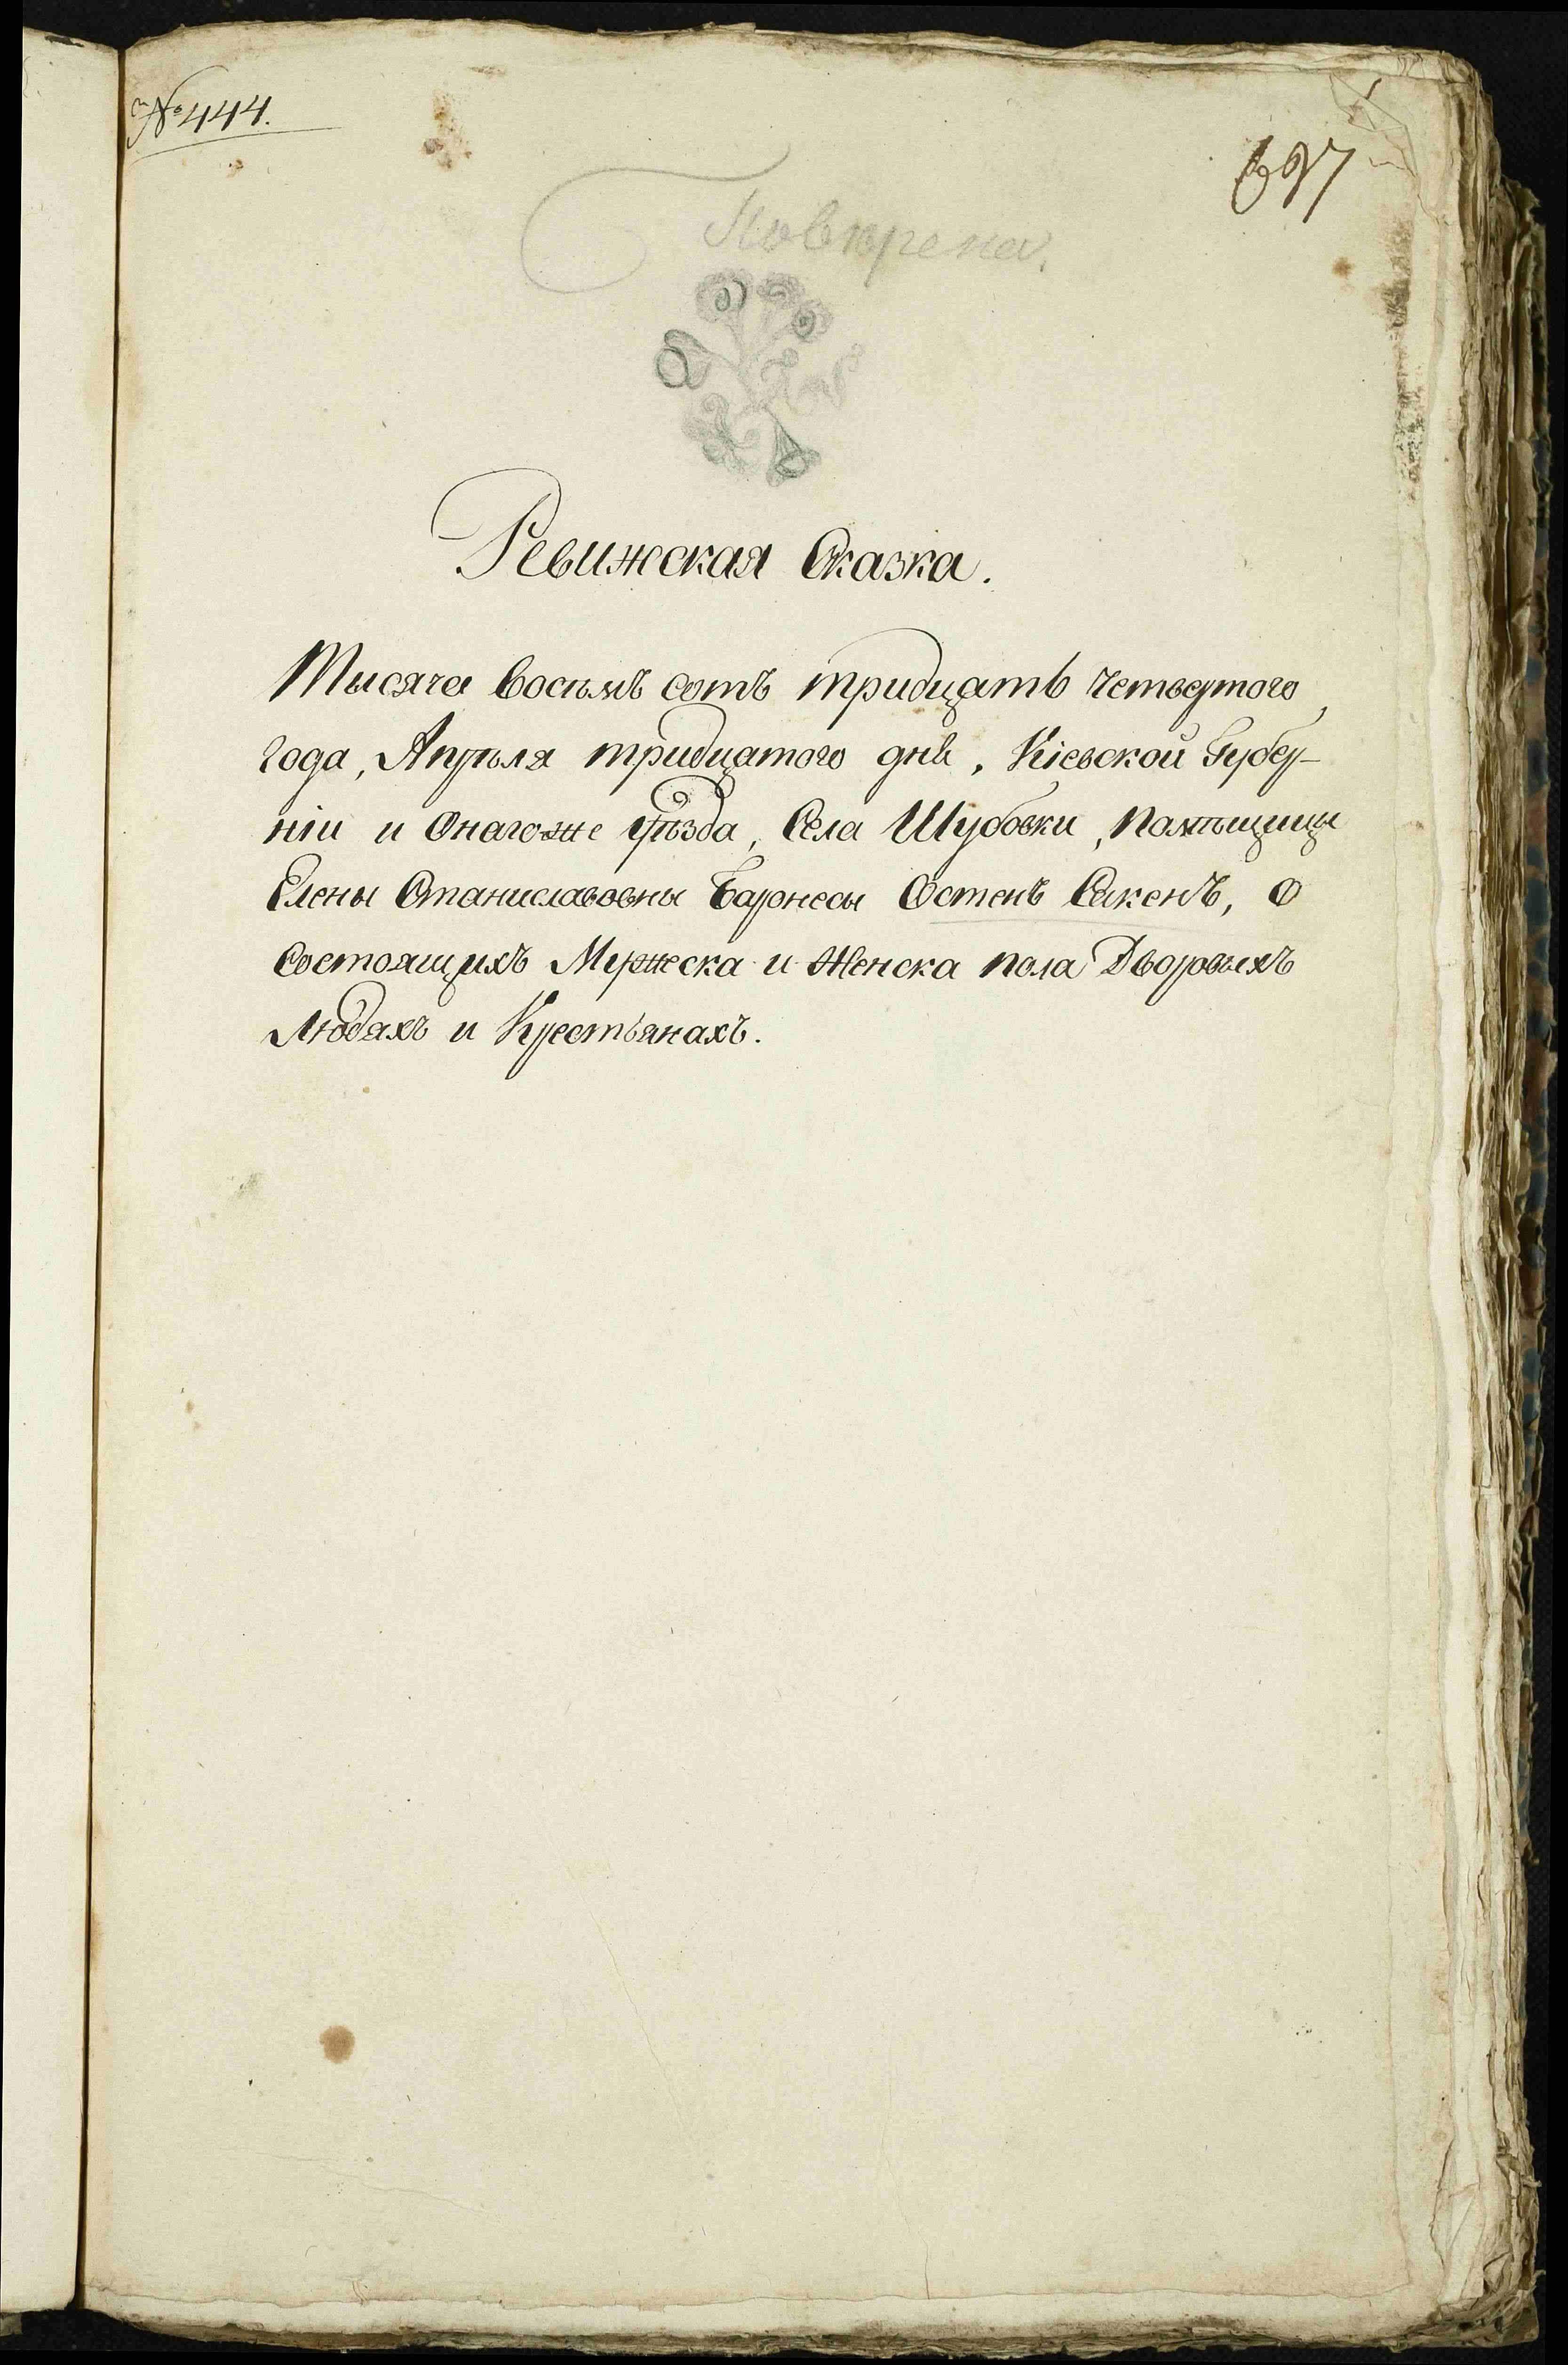 № 444.
697
Повѣрена.
Ревижская Сказка.
Тысяча восемъ сотъ тридцать четвертого
года, Апрѣля тридцатого дня, Кіевской Губер-
ніи и Онагоже уѣзда, Села Шубовки, Помѣщицы
Елены Станиславовны Баронесы Остенъ Сакенъ, О
Состоящихъ Мужеска и Женска пола Дворовыхъ
Людяхъ и Крестьянахъ.